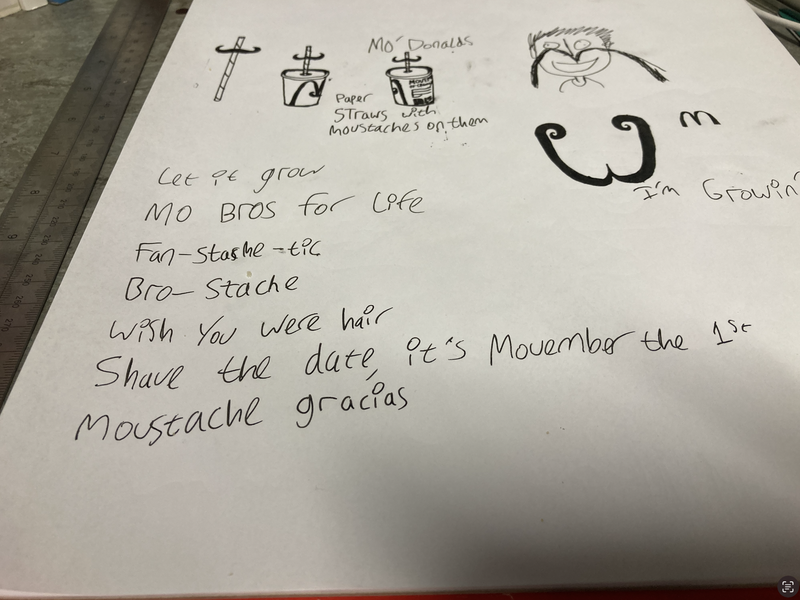 Mo' Donalds
Paper
Straws with
moustaches on them
m
I'm Growin'
Let it grow
Mo Bros for Life
Fan-stache-tic
Bro-Stache
Wish You were hair
Shave the date, it's Movember the 1st
Moustache gracias